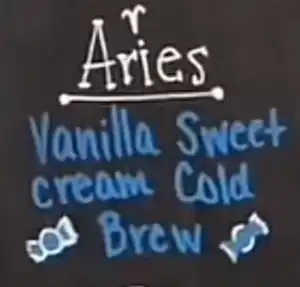 Aries
Vanilla Sweet
cream Cold
Brew